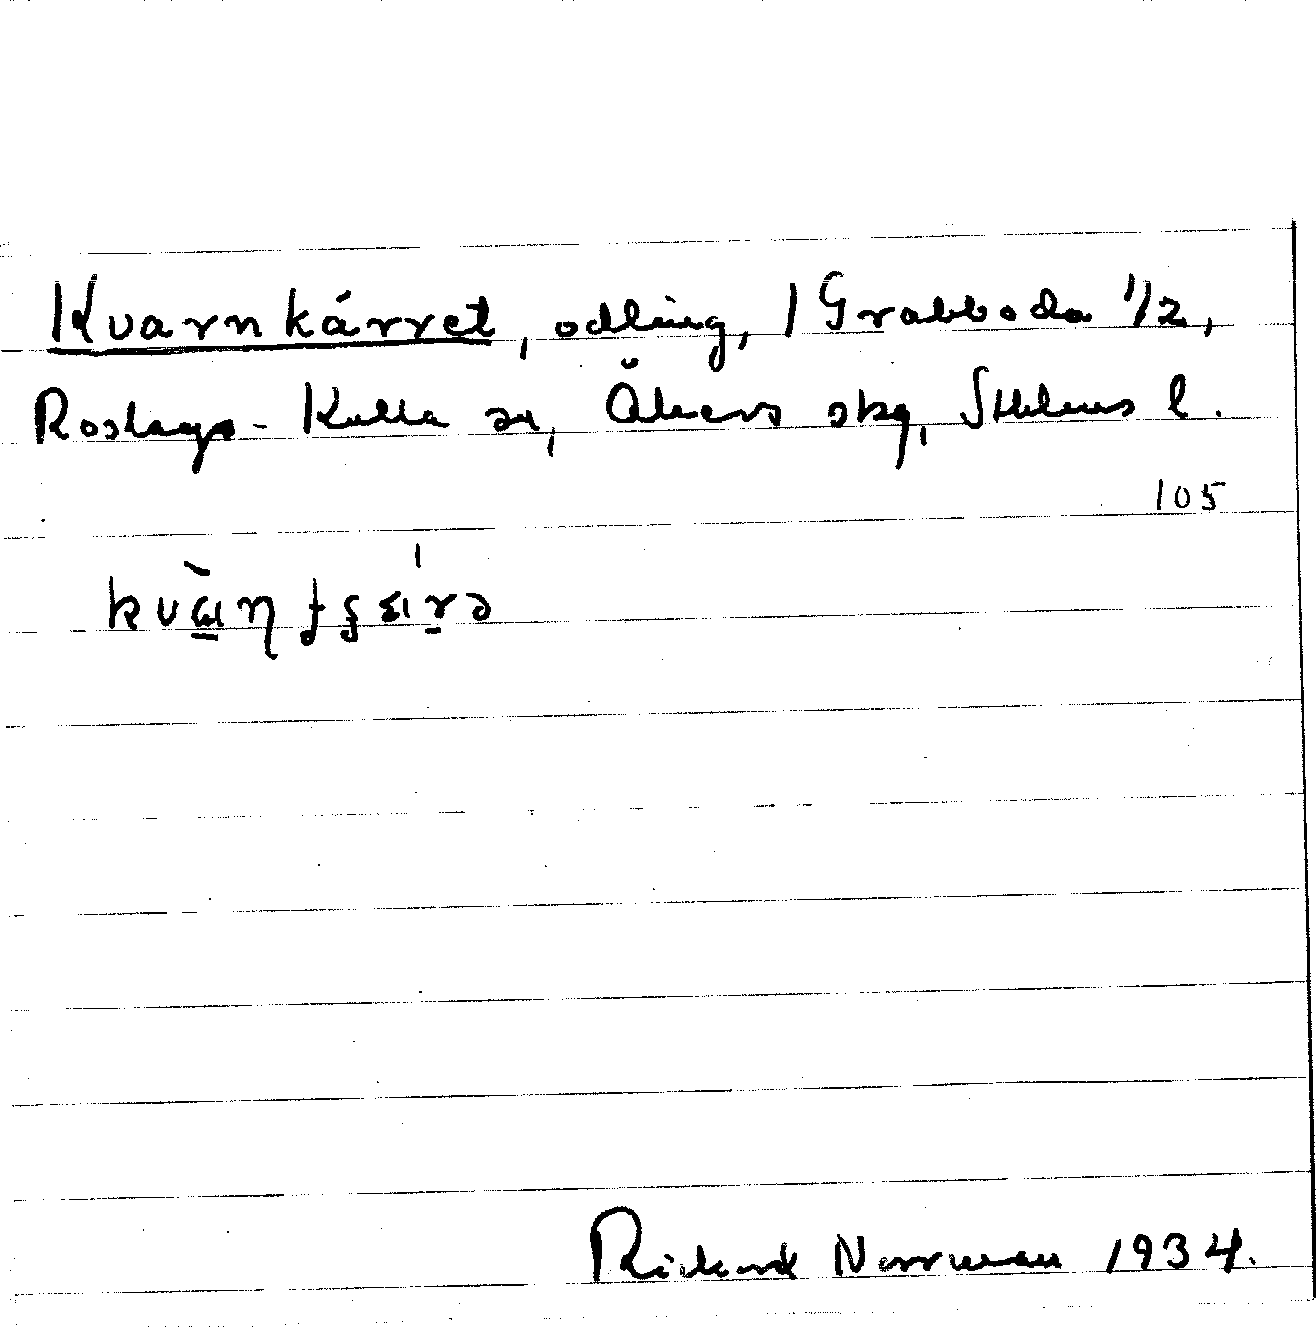 Kvarnkärret, odling, 1 Grabboda 1/2,
Roslags-Kulla sn, Åkers skg, Sthlms l.
105
Rickard Norrman 1934.